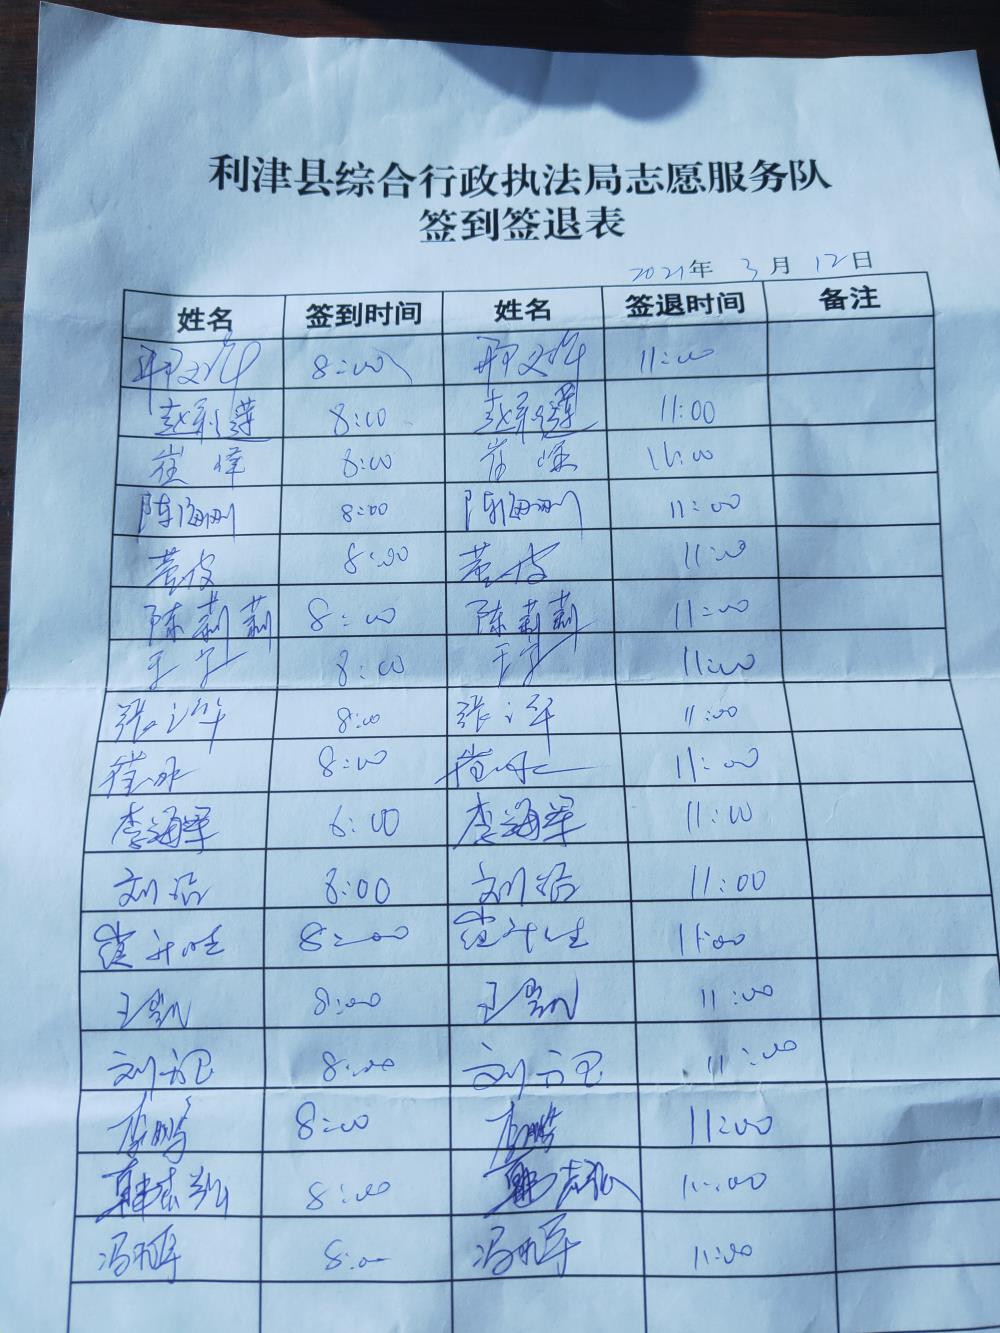 利津县综合行政执法局志愿服务队
签到签退表
2021年 3月 12日
姓名 签到时间 姓名 签退时间 备注
8:00 11:00
赵利莲 8:00 赵利莲 11:00
崔 8:00 崔 11:00
陈海删 8:00 陈海删 11:00
8:00 11:00
陈莉莉 8:00 陈莉莉 11:00
8:00 11:00
张 8:00 张 11:00
8:00 11:00
李海军 8:00 李海军 11:00
刘 8:00 刘 11:00
8:00 11:00
王凯 8:00 王凯 11:00
刘 8:00 刘 11:00
李鹏 8:00 李鹏 11:00
韩志 8:00 韩志 11:00
冯 军 8:00 冯 军 11:00